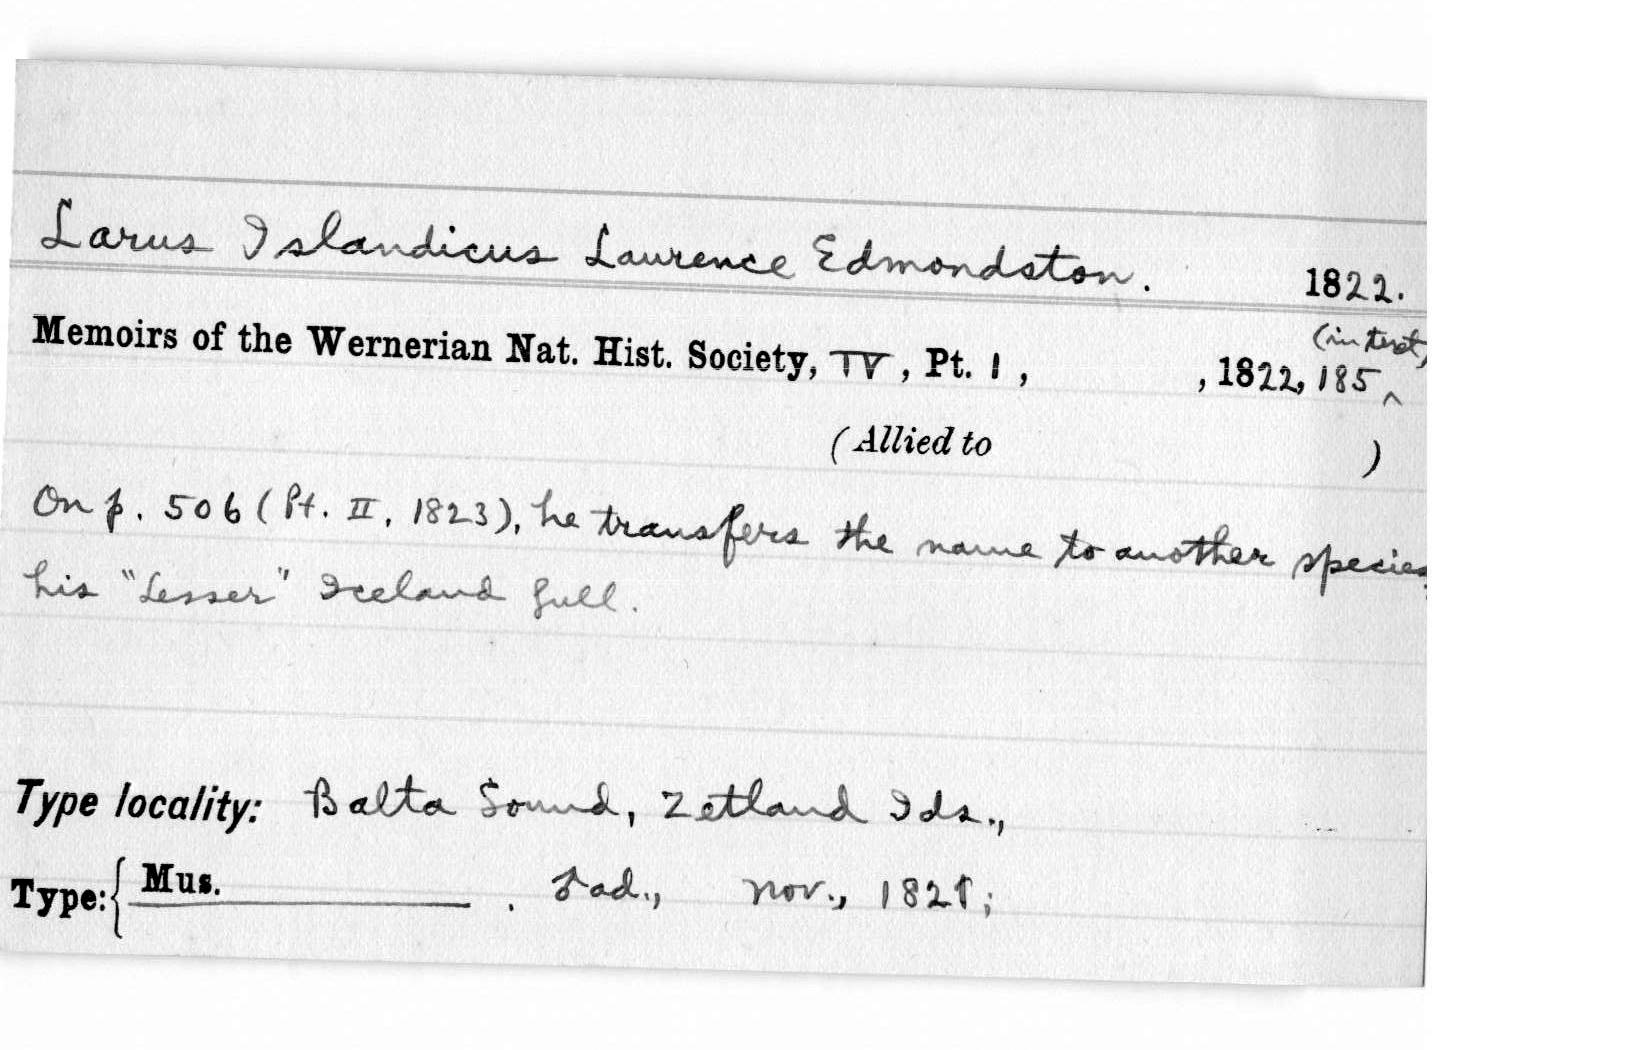 Larus Islandicus Laurence Edmondston. 1822.
(in text)
Memoirs of the Wernerian Nat. Hist. Society, IV, Pt. 1, , 1822, 185 ^
(Allied to )
On p. 506 (Pt. II, 1823), he transfers the name to another species,
his "Lesser" Iceland Gull.
Type locality: Balta Sound, Zetland Ids.,
Type: { Mus. . ad., Nov., 1821;